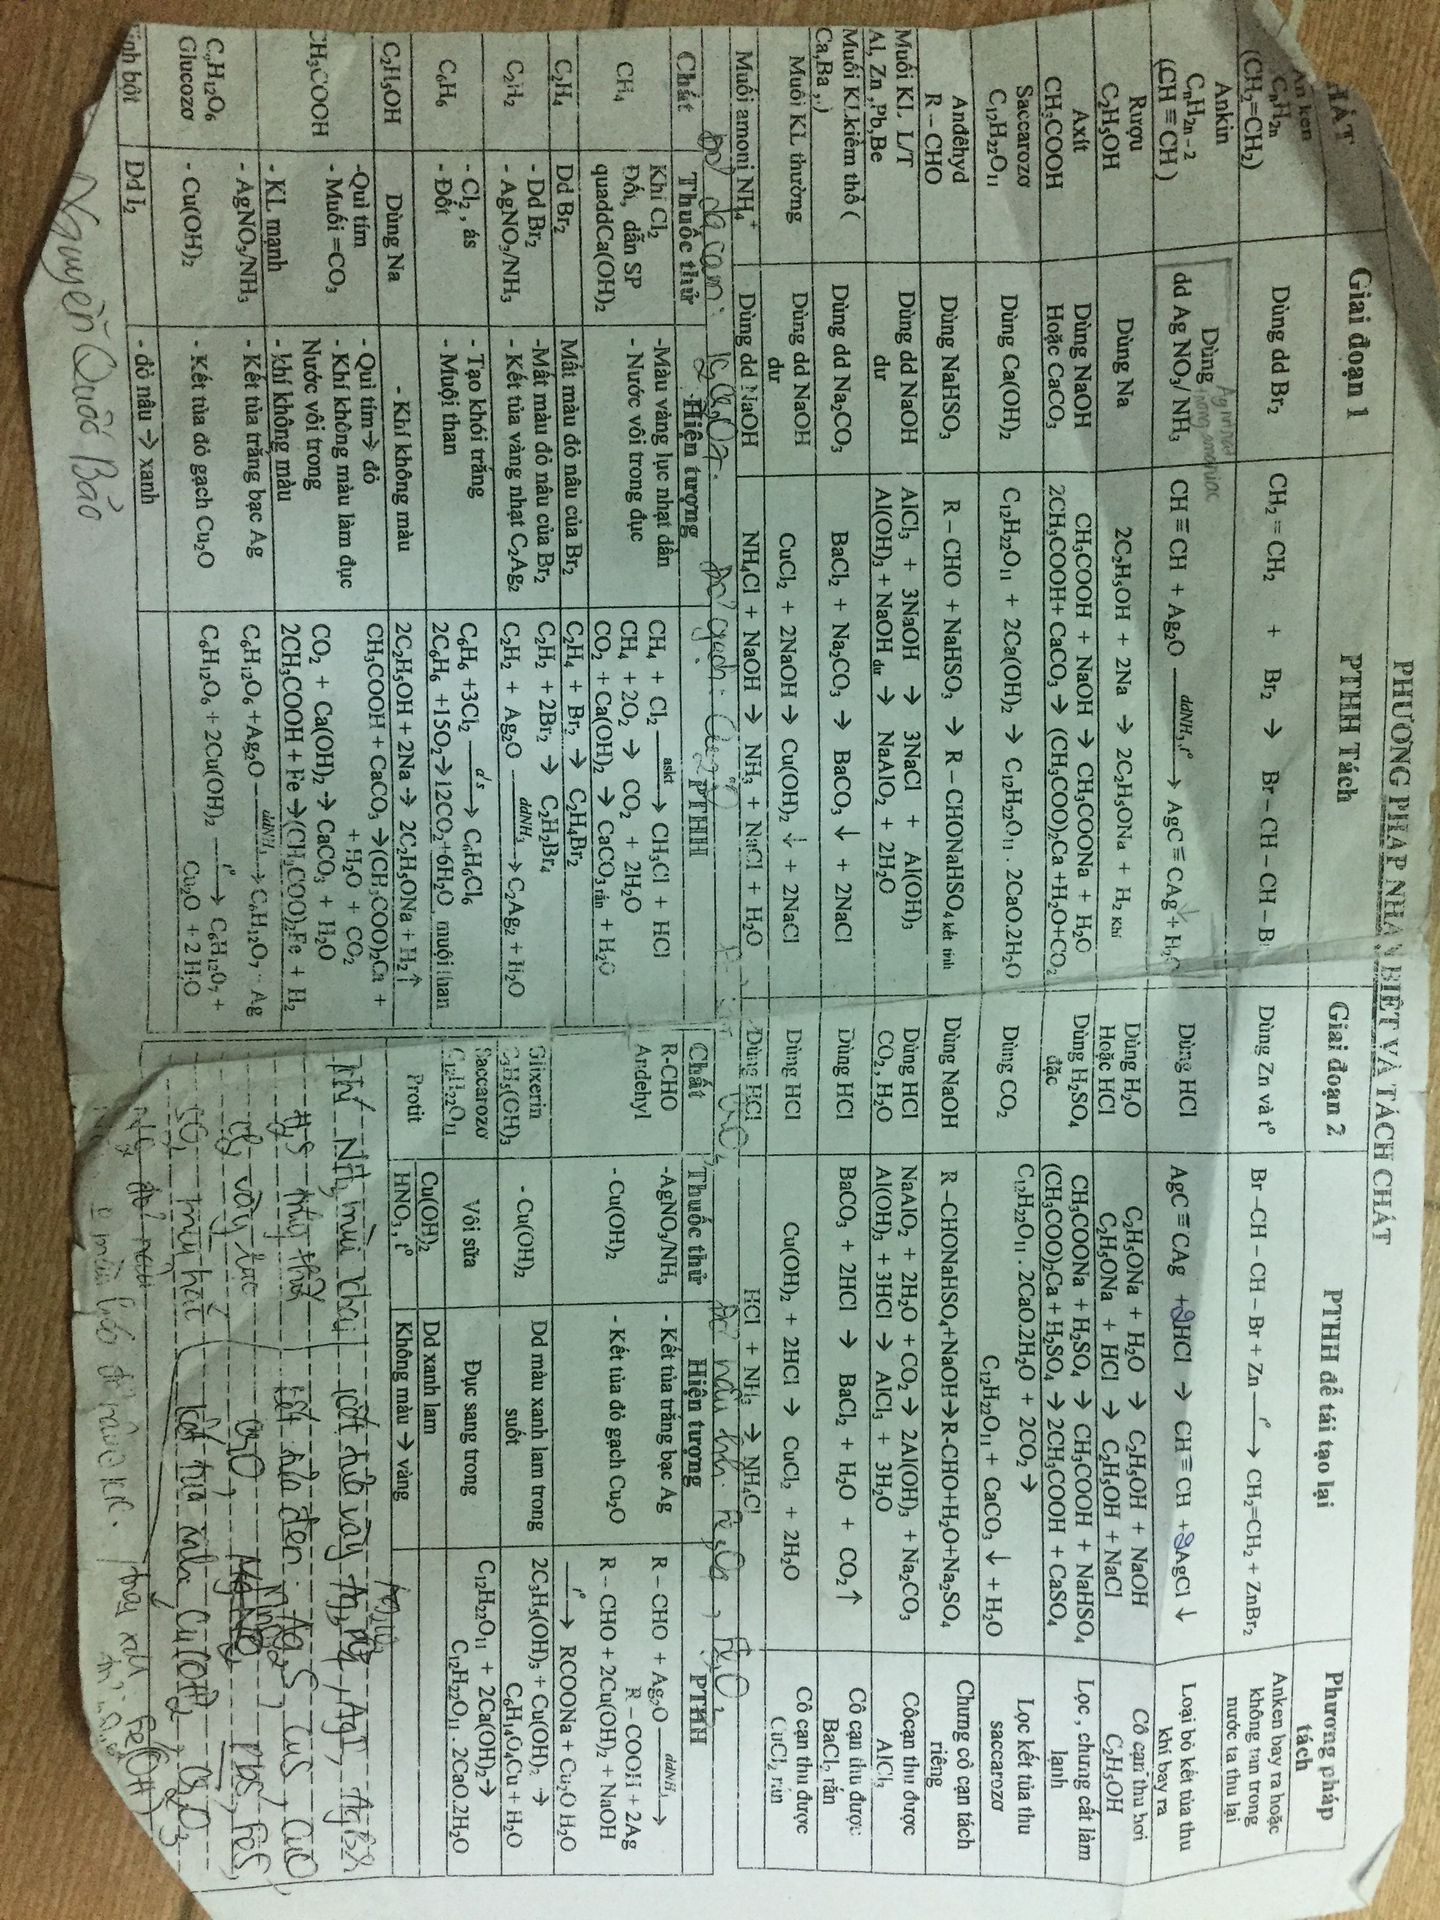 PHƯƠNG PHÁP NHẬN BIẾT VÀ TÁCH CHẤT
HẤT Giai đoạn 1 PTHH Tách Giai đoạn 2 PTHH để tái tạo lại Phương pháp tách
An ken CnH2n (CH2=CH2) Dùng dd Br2 CH2 = CH2 + Br2 → Br – CH – CH – B Dùng Zn và t° Br –CH – CH – Br + Zn —t°→ CH2=CH2 + ZnBr2 Anken bay ra hoặc không tan trong nước ta thu lại
Ankin CnH2n – 2 (CH ≡ CH ) Dùng dd Ag NO3/ NH3 CH ≡ CH + Ag2O —ddNH3,t°→ AgC ≡ CAg + H2O Dùng HCl AgC ≡ CAg +2HCl → CH ≡ CH +2AgCl ↓ Loại bỏ kết tủa thu khí bay ra
Rượu C2H5OH Dùng Na 2C2H5OH + 2Na → 2C2H5ONa + H2 Khí Dùng H2O Hoặc HCl C2H5ONa + H2O → C2H5OH + NaOH C2H5ONa + HCl → C2H5OH + NaCl Cô cạn thu hơi C2H5OH
Axít CH3COOH Dùng NaOH Hoặc CaCO3 CH3COOH + NaOH → CH3COONa + H2O 2CH3COOH+ CaCO3 → (CH3COO)2Ca +H2O+CO2 Dùng H2SO4 đặc CH3COONa + H2SO4 → CH3COOH + NaHSO4 (CH3COO)2Ca + H2SO4 → 2CH3COOH + CaSO4 Lọc , chưng cất làm lạnh
Saccarozơ C12H22O11 Dùng Ca(OH)2 C12H22O11 + 2Ca(OH)2 → C12H22O11 . 2CaO.2H2O Dùng CO2 C12H22O11 . 2CaO.2H2O + 2CO2 → C12H22O11 + CaCO3 ↓ + H2O Lọc kết tủa thu saccarozơ
Anđêhyd R – CHO Dùng NaHSO3 R – CHO + NaHSO3 → R – CHONaHSO4 kết tinh Dùng NaOH R –CHONaHSO4+NaOH→R-CHO+H2O+Na2SO4 Chưng cô cạn tách riêng
Muối KL L/T Al, Zn ,Pb,Be Dùng dd NaOH dư AlCl3 + 3NaOH → 3NaCl + Al(OH)3 Al(OH)3 + NaOH dư → NaAlO2 + 2H2O Dùng HCl CO2, H2O NaAlO2 + 2H2O + CO2 → 2Al(OH)3 + Na2CO3 Al(OH)3 + 3HCl → AlCl3 + 3H2O Côcạn thu được AlCl3
Muối KL kiềm thổ ( Ca,Ba ,.) Dùng dd Na2CO3 BaCl2 + Na2CO3 → BaCO3 ↓ + 2NaCl Dùng HCl BaCO3 + 2HCl → BaCl2 + H2O + CO2 ↑ Cô cạn thu được BaCl2 rắn
Muối KL thường Dùng dd NaOH dư CuCl2 + 2NaOH → Cu(OH)2 ↓ + 2NaCl Dùng HCl Cu(OH)2 + 2HCl → CuCl2 + 2H2O Cô cạn thu được CuCl2 rắn
Muối amoni NH4+ Dùng dd NaOH NH4Cl + NaOH → NH3 + NaCl + H2O Dùng HCl HCl + NH3 → NH4Cl
Chất Thuốc thử Hiện tượng PTHH
CH4 Khí Cl2 Đốt, dẫn SP quaddCa(OH)2 -Màu vàng lục nhạt dần - Nước vôi trong đục CH4 + Cl2 —askt→ CH3Cl + HCl CH4 + 2O2 → CO2 + 2H2O CO2 + Ca(OH)2 → CaCO3 rắn + H2O
C2H4 Dd Br2 Mất màu đỏ nâu của Br2 C2H4 + Br2 → C2H4Br2
C2H2 - Dd Br2 - AgNO3/NH3 -Mất màu đỏ nâu của Br2 - Kết tủa vàng nhạt C2Ag2 C2H2 + 2Br2 → C2H2Br4 C2H2 + Ag2O —ddNH3→ C2Ag2 + H2O
C6H6 - Cl2 , ás - Đốt - Tạo khói trắng - Muội than C6H6 +3Cl2 —a's→ C6H6Cl6 2C6H6 +15O2→12CO2+6H2O muội than
C2H5OH Dùng Na - Khí không màu 2C2H5OH + 2Na → 2C2H5ONa + H2 ↑
CH3COOH -Quì tím - Muối =CO3 - KL mạnh - Quì tím→ đỏ - Khí không màu làm đục Nước vôi trong - khí không màu CH3COOH + CaCO3 →(CH3COO)2Ca + + H2O + CO2 CO2 + Ca(OH)2 → CaCO3 + H2O 2CH3COOH + Fe →(CH3COO)2Fe + H2
C6H12O6 Glucozơ - AgNO3/NH3 - Cu(OH)2 - Kết tủa trắng bạc Ag - Kết tủa đỏ gạch Cu2O C6H12O6 +Ag2O —ddNH3→ C6H12O7 + Ag C6H12O6 + 2Cu(OH)2 —t°→ C6H12O7 + Cu2O + 2H2O
Tinh bột Dd I2 - đỏ nâu → xanh
Nguyễn Quốc Bảo
Chất Thuốc thử Hiện tượng PTHH
R-CHO Andehyl -AgNO3/NH3 - Cu(OH)2 - Kết tủa trắng bạc Ag - Kết tủa đỏ gạch Cu2O R – CHO + Ag2O —ddNH3→ R – COOH + 2Ag R – CHO + 2Cu(OH)2 + NaOH —t°→ RCOONa + Cu2O H2O
Glixerin C3H5(OH)3 - Cu(OH)2 Dd màu xanh lam trong suốt 2C3H5(OH)3 + Cu(OH)2 → C6H14O4Cu + H2O
Saccarozơ C12H22O11 Vôi sữa Đục sang trong C12H22O11 + 2Ca(OH)2→ C12H22O11 . 2CaO.2H2O
Protit Cu(OH)2 HNO3, t° Dd xanh lam Không màu → vàng
NH3 mùi khai
kết tủa đen: Ag2S, CuS, CuO, PbS, FeS
kết tủa xanh: Cu(OH)2, Cr2O3